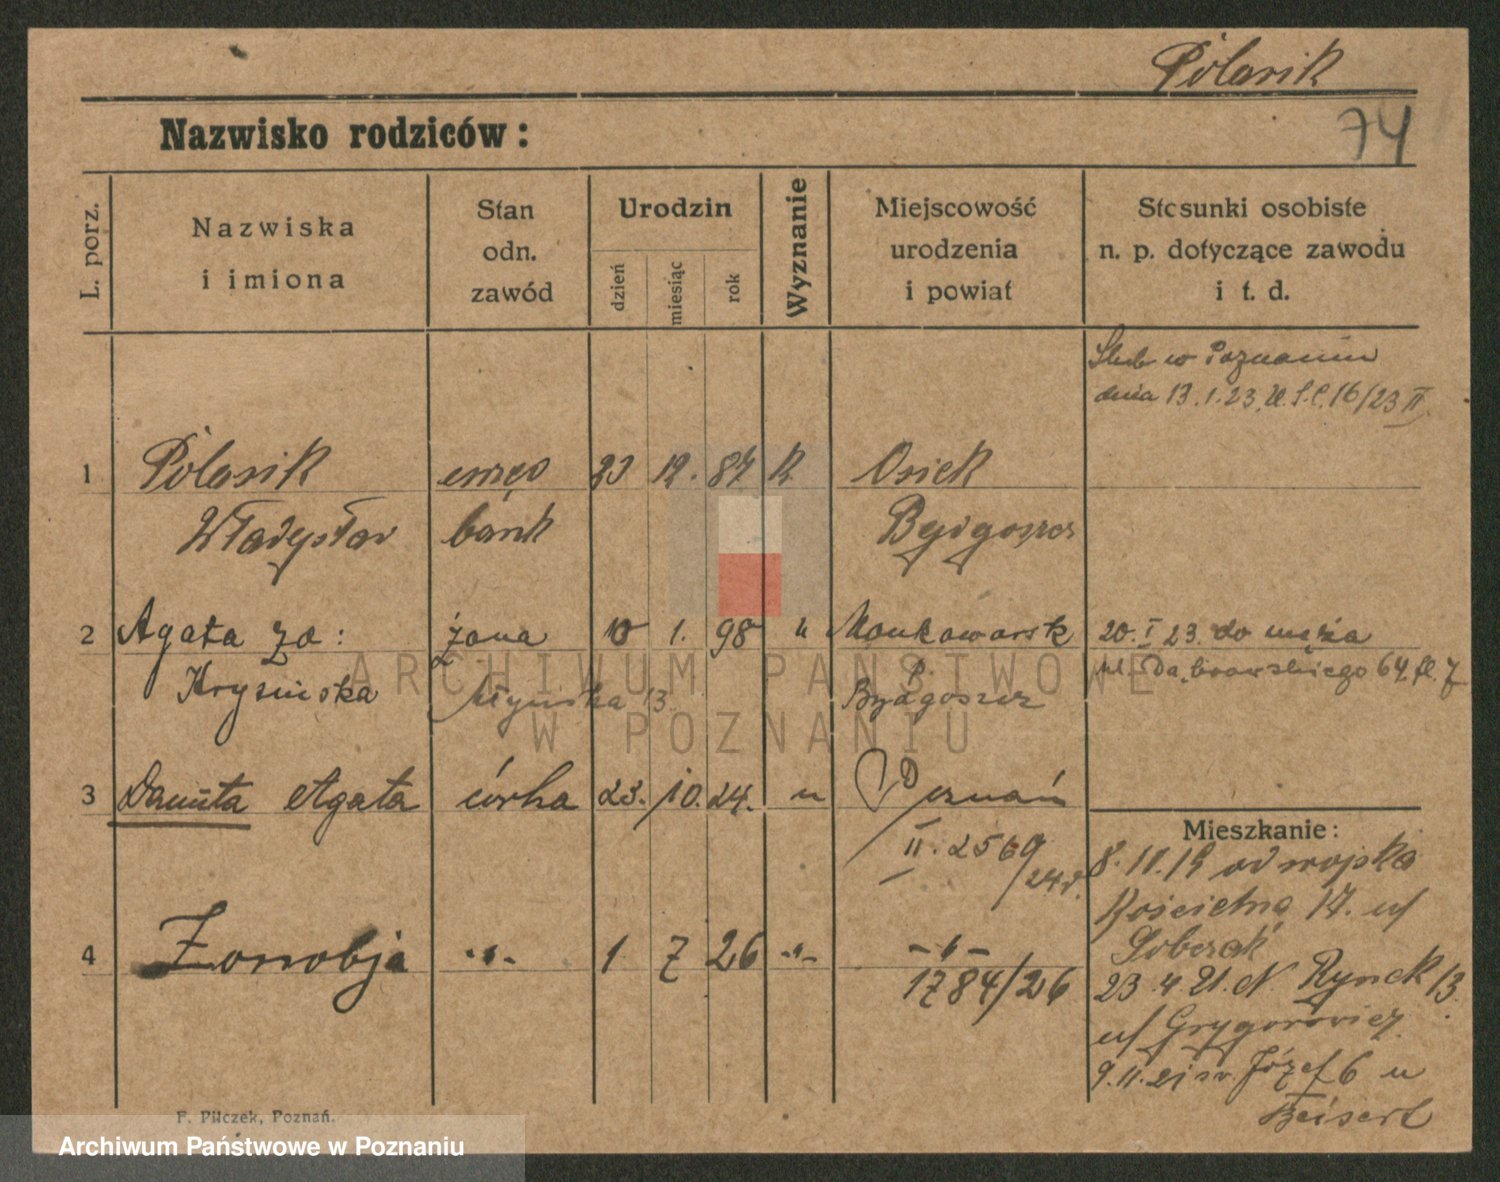 Polasik
Nazwisko rodziców:
74
L. porz.
Nazwiska
i imiona
Stan
odn.
zawód
Urodzin
dzień
miesiąc
rok
Wyznanie
Miejscowość
urodzenia
i powiat
Stosunki osobiste
n. p. dotyczące zawodu
i t. d.
Ślub w Poznaniu
dnia 13.1.23. U.S.C. 16/23 II
1 Polasik 23 12. 87 K. Osiek
Władysław bank Bydgoszcz
2 Agata za: żona 10 1. 98 " 20. I 23. do męża
Krysińska Młyńska 13 Bydgoszcz pl. Dąbrowskiego 64
ARCHIWUM PAŃSTWOWE
W POZNANIU
3 Danuta Agata córka 23. 10. 24. " Poznań
II. 2569
/24r.
4 Zonobja -"- 1 7 26 -"- -"-
1784/26
Mieszkanie:
8.11.19 od wojska
Kościelna 17. u/
Sobczak
23.4.21. N. Rynek 13.
u/ Grygorowicz
9.11.21 św. Józef 6 u
Beisert
F. Pilczek, Poznań.
Archiwum Państwowe w Poznaniu